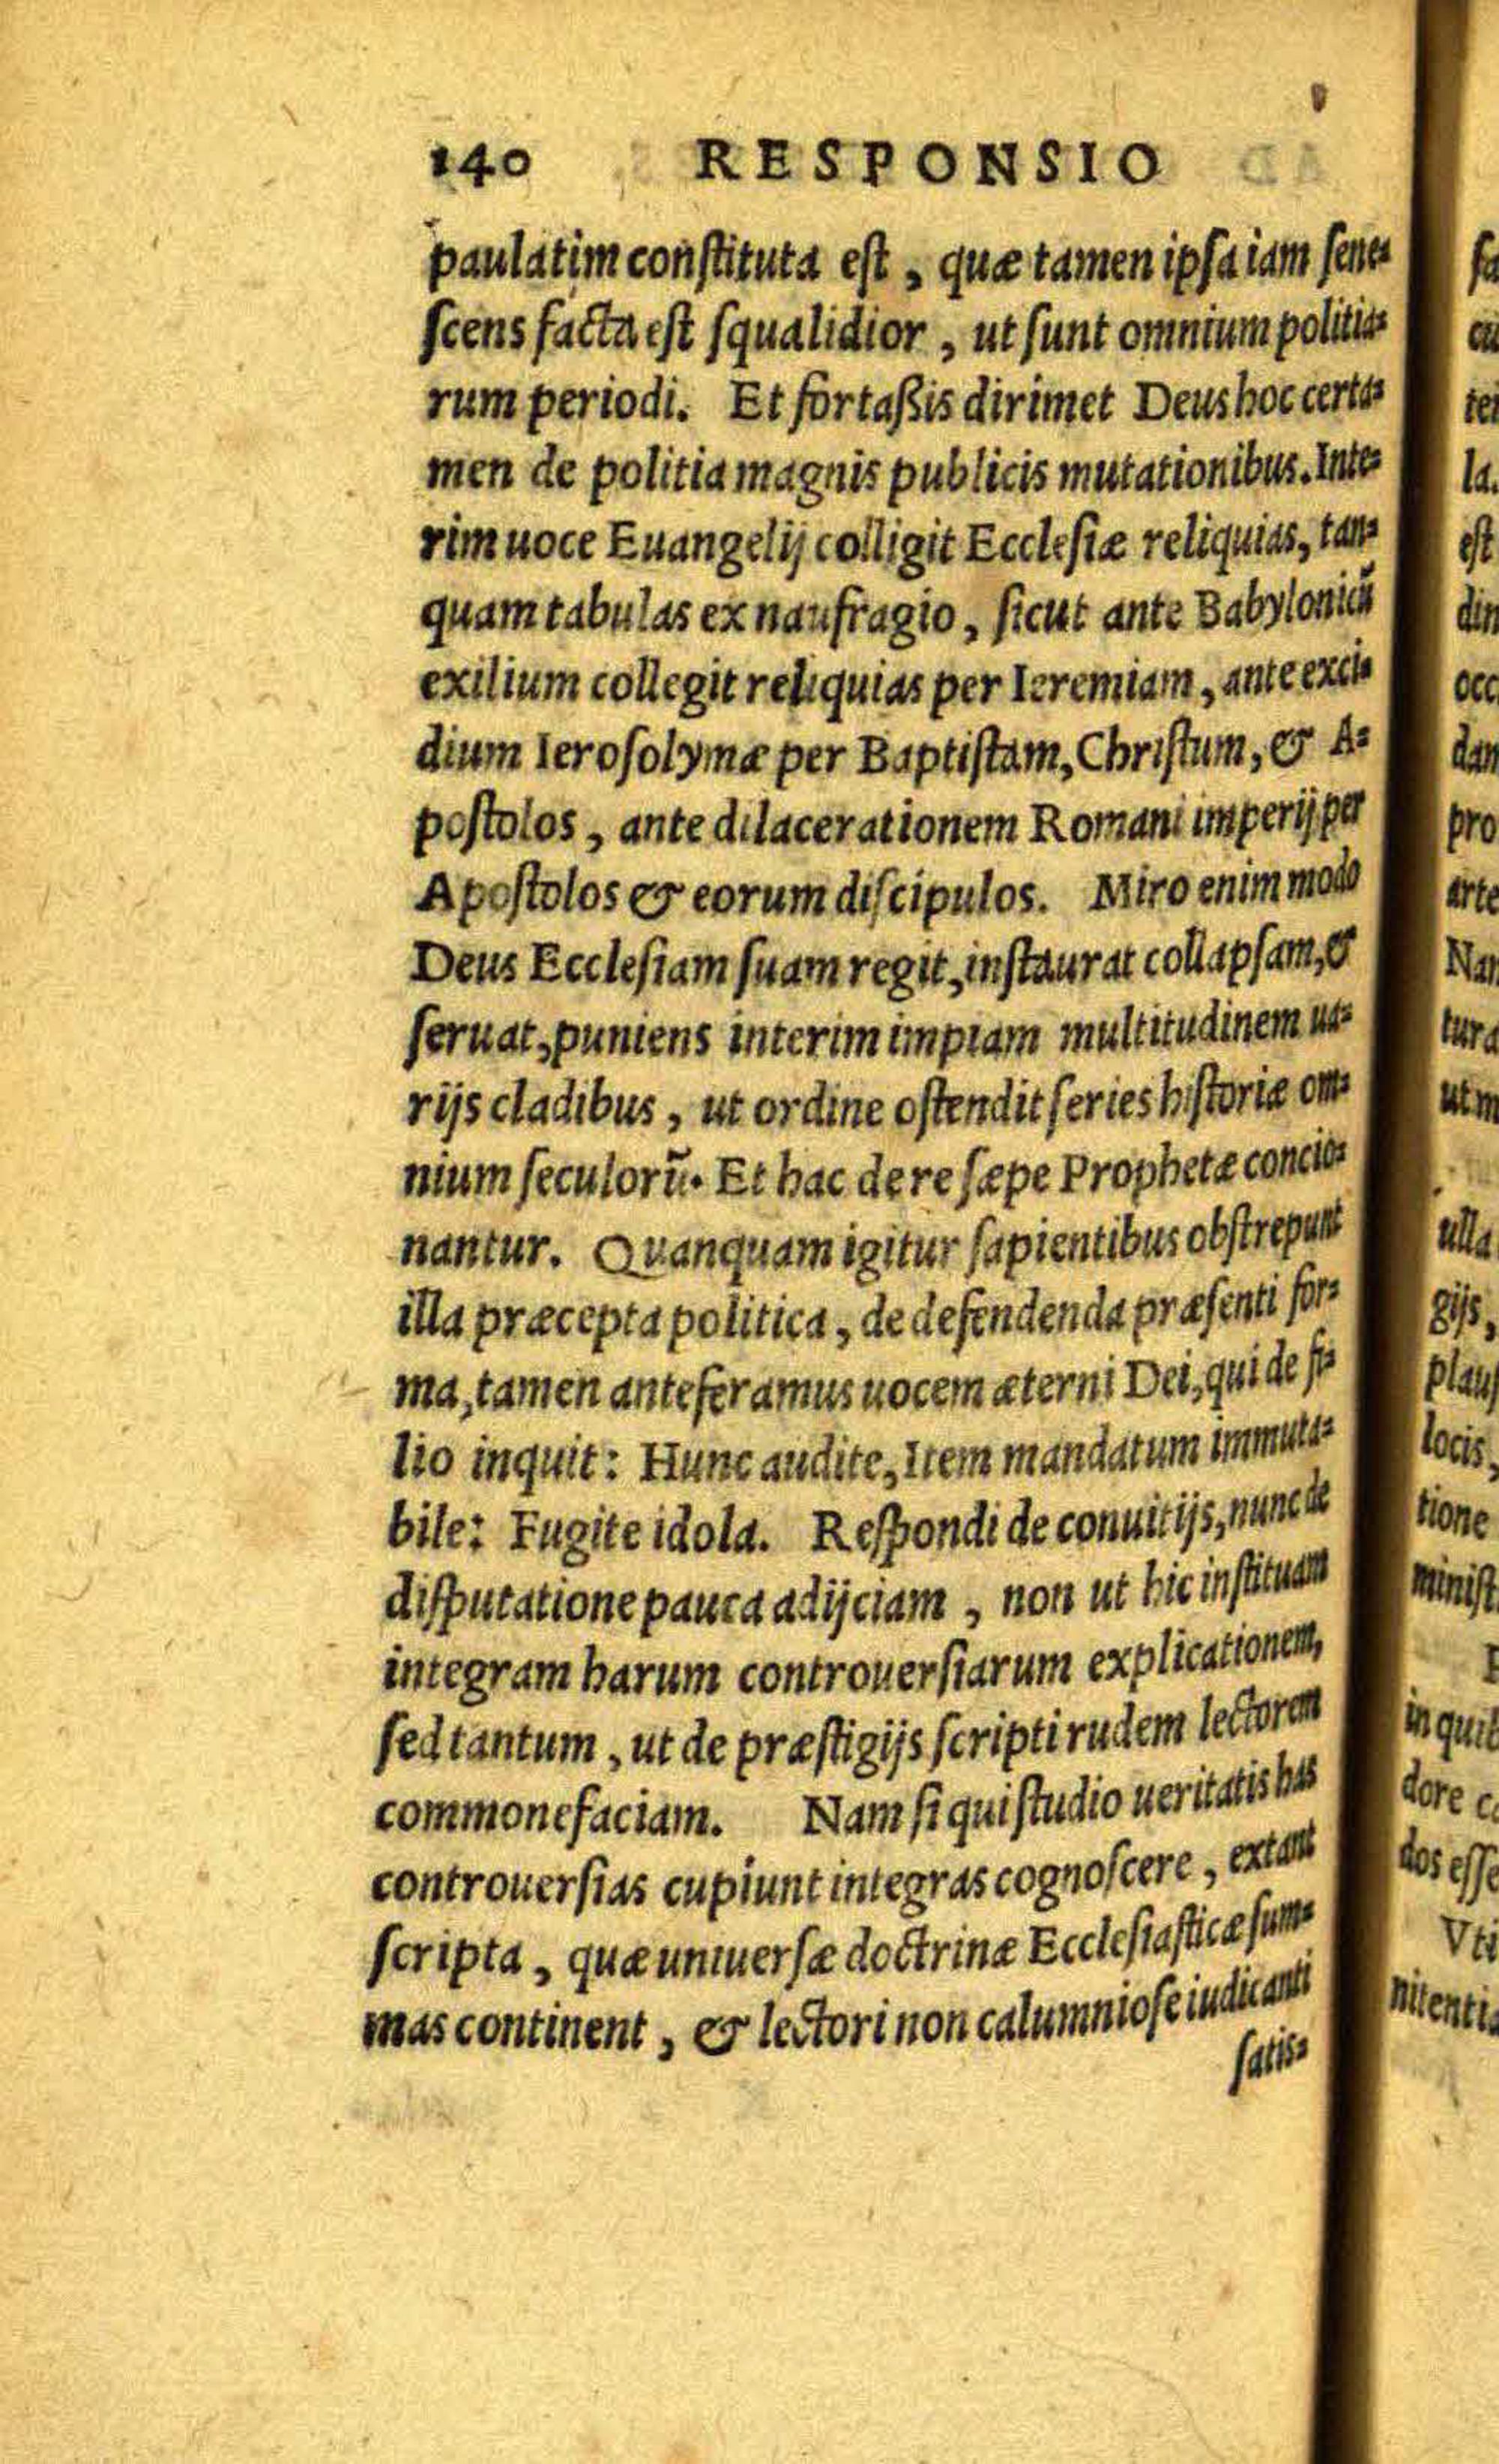 140 RESPONSIO
paulatim constituta est, quæ tamen ipsa iam sene=
scens facta est squalidior, ut sunt omnium politia=
rum periodi. Et fortaßis dirimet Deus hoc certa=
men de politia magnis publicis mutationibus. Inte=
rim uoce Euangelij colligit Ecclesiæ reliquias, tan=
quam tabulas ex naufragio, sicut ante Babylonicũ
exilium collegit reliquias per Ieremiam, ante exci=
dium Ierosolymæ per Baptistam, Christum, & A=
postolos, ante dilacerationem Romani imperij per
Apostolos & eorum discipulos. Miro enim modo
Deus Ecclesiam suam regit, instaurat collapsam, &
seruat, puniens interim impiam multitudinem ua=
rijs cladibus, ut ordine ostendit series historiæ om=
nium seculorũ. Et hac de re sæpe Prophetæ concio=
nantur. Quanquam igitur sapientibus obstrepunt
illa præcepta politica, de defendenda præsenti for=
ma, tamen anteferamus uocem æterni Dei, qui de fi=
lio inquit: Hunc audite, Item mandatum immuta=
bile: Fugite idola. Respondi de conuitijs, nunc de
disputatione pauca adijciam, non ut hic instituam
integram harum controuersiarum explicationem,
sed tantum, ut de præstigijs scripti rudem lectorem
commonefaciam. Nam si qui studio ueritatis has
controuersias cupiunt integras cognoscere, extant
scripta, quæ uniuersæ doctrinæ Ecclesiasticæ sum=
mas continent, & lectori non calumniose iudicanti
satis=